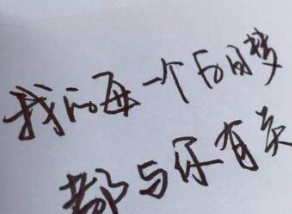 我的每一个白日梦
都与你有关